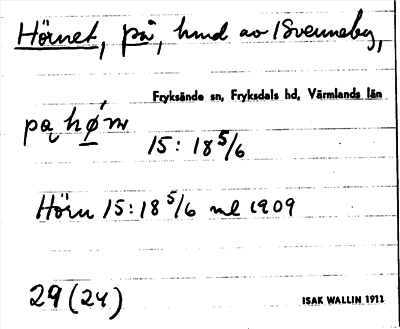 Hörnet, på, hmd av Svenneby,
Fryksände sn, Fryksdals hd, Värmlands län
på hǿ̱rn
15: 18 5/6
Hörn 15:18 5/6 ml 1909
29 (24)
ISAK WALLIN 1911